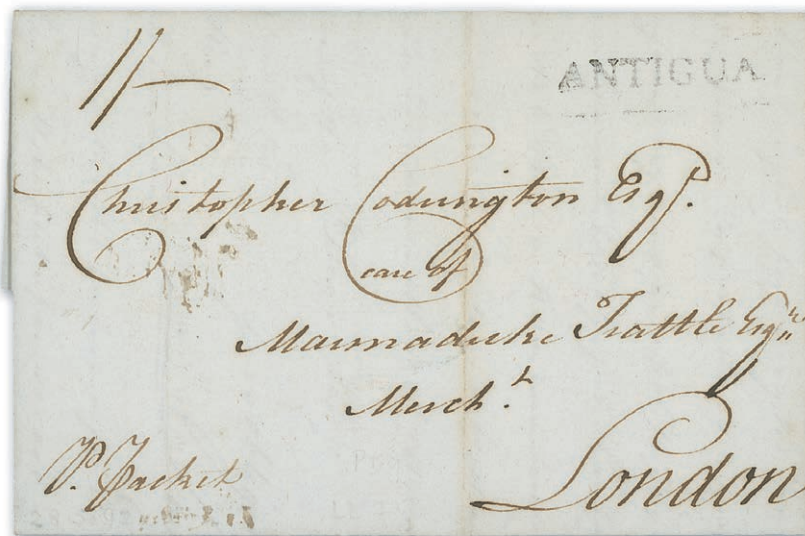 1/-
ANTIGUA
Christopher Codrington Esqr.
care of
Marmaduke Trattle Esqr.
Merch.t
P. Packet
London